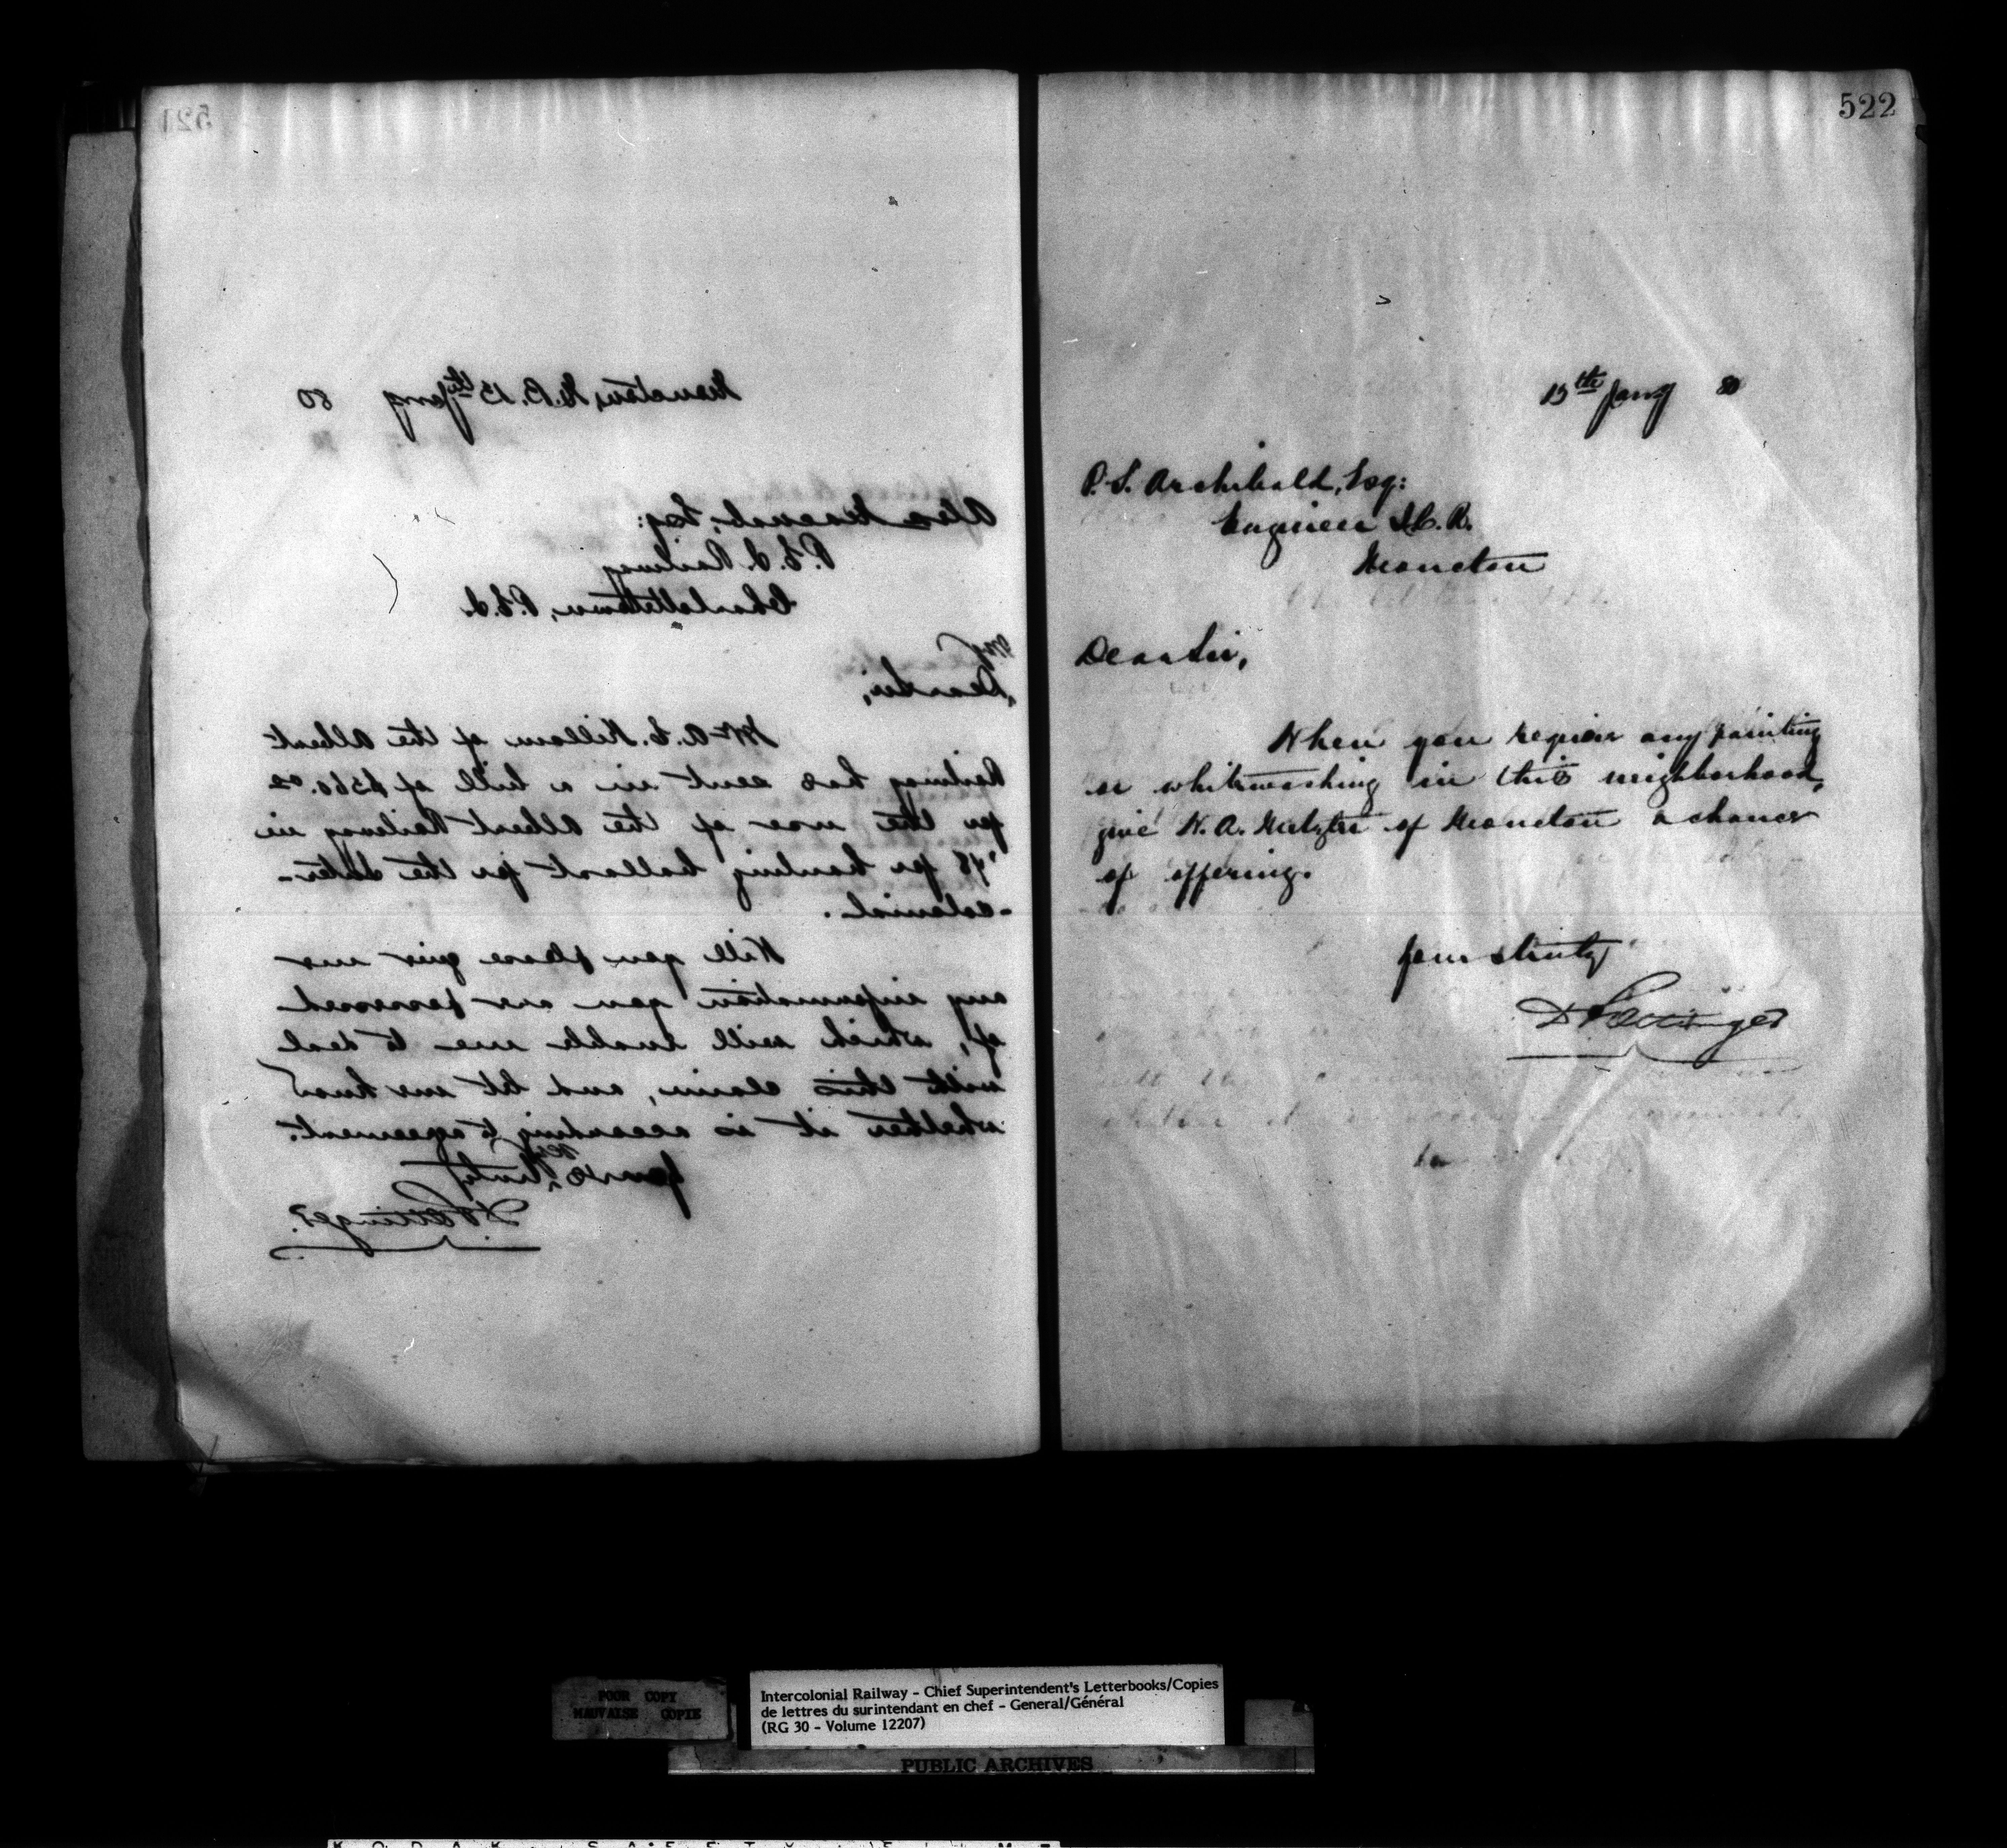 521
Moncton, N.B. 15th Jany 80
Alex Macnab, Esq:
P.E.I. Railway
Charlottetown, P.E.I.
My
Dear Sir,
Mr A. E. Killam of the Albert
Railway has sent in a bill of $360.02
for the use of the Albert Railway in
'78 for hauling ballast for the Inter-
-colonial.
Will you please give me
any information you are possessed
of, which will enable me to deal
with this claim, and let me know
whether it is according to agreement.
Yours truly
D Pottinger.
522
15th Jany 80
P. S. Archibald, Esq:
Engineer I.C.R.
Moncton
Dear Sir,
When you require any painting
or whitewashing in this neighborhood,
give N. A. of Moncton a chance
of offering.
Yours truly
D Pottinger
POOR COPY
MAUVAISE COPIE
Intercolonial Railway - Chief Superintendent's Letterbooks/Copies
de lettres du surintendant en chef - General/Général
(RG 30 - Volume 12207)
PUBLIC ARCHIVES